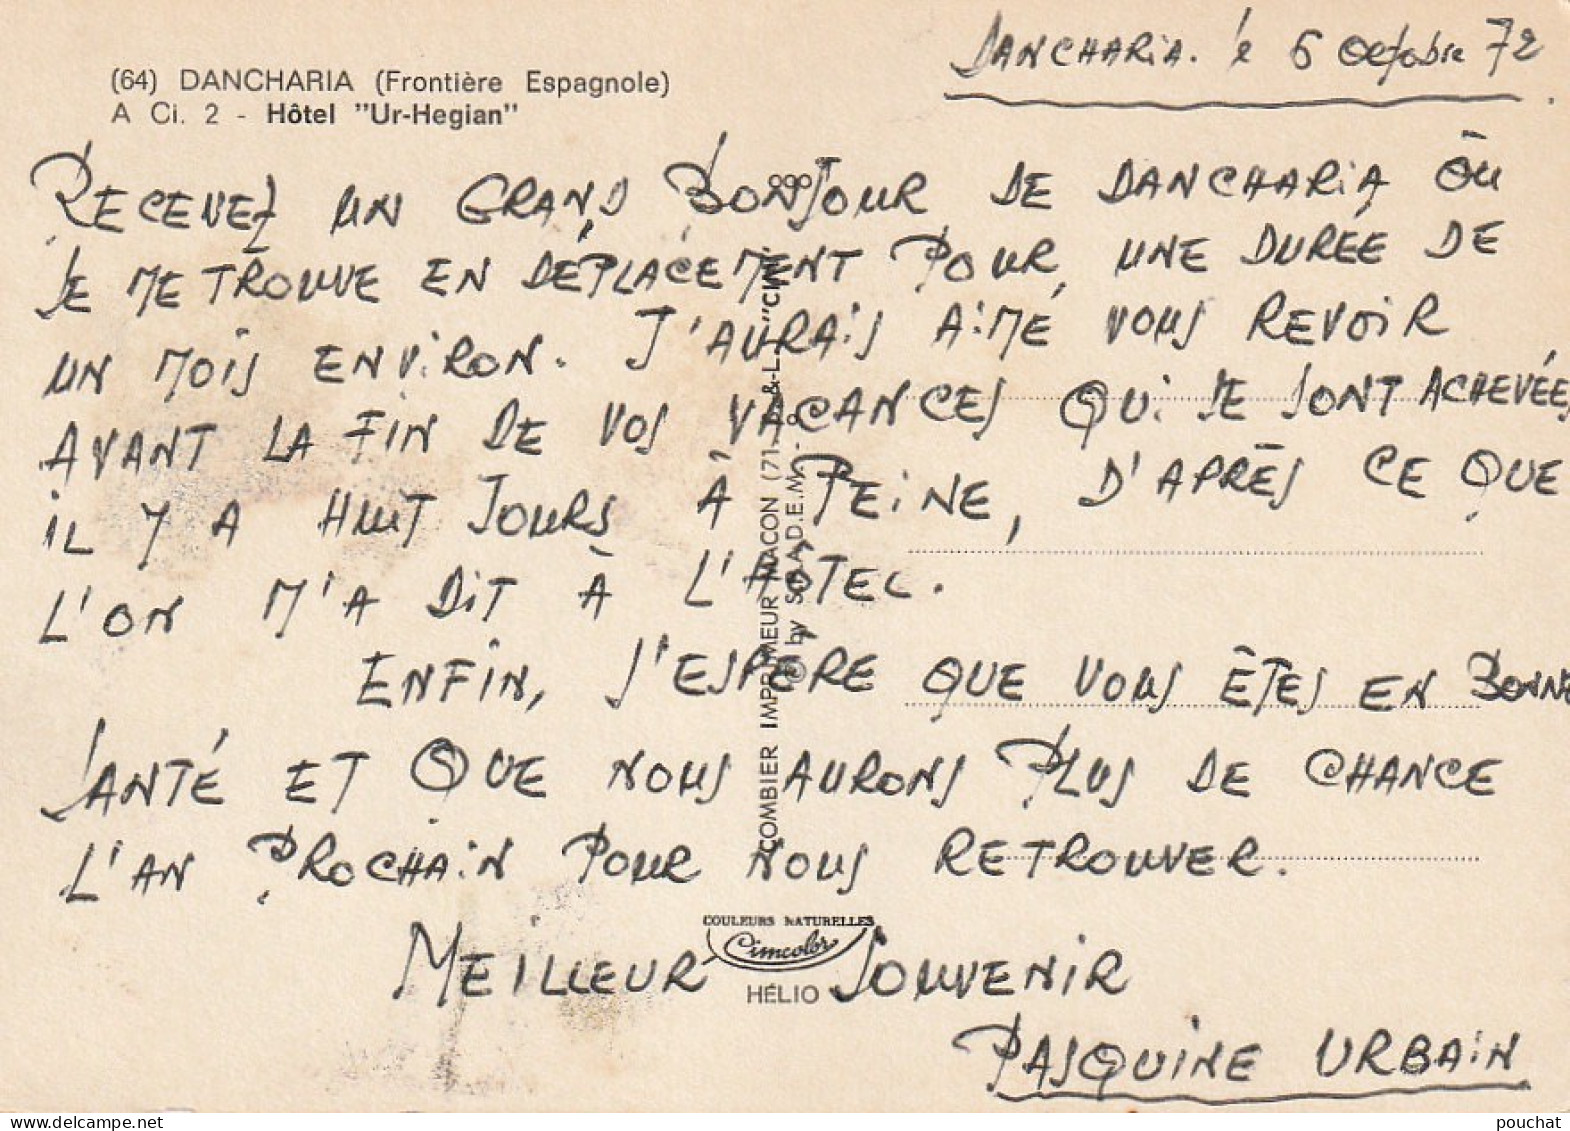 (64) DANCHARIA (Frontière Espagnole)
A Ci. 2 - Hôtel "Ur-Hegian"
DANCHARIA. le 6 Octobre 72
RECEVEZ UN GRAND BONJOUR DE DANCHARIA OÙ
JE ME TROUVE EN DÉPLACEMENT POUR UNE DURÉE DE
UN MOIS ENVIRON. J'AURAIS AIMÉ VOUS REVOIR
AVANT LA FIN DE VOS VACANCES QUI SE SONT ACHEVÉES
IL Y A HUIT JOURS À PEINE, D'APRÈS CE QUE
L'ON M'A DIT À L'HÔTEL.
ENFIN, J'ESPÈRE QUE VOUS ÊTES EN BONNE
SANTÉ ET QUE NOUS AURONS PLUS DE CHANCE
L'AN PROCHAIN POUR NOUS RETROUVER.
MEILLEUR SOUVENIR
PASQUINE URBAIN
COMBIER IMPRIMEUR MACON (71-S.-&-L.) "CIM"
© by S.P.A.D.E.M.
COULEURS NATURELLES
Cimcolor
HÉLIO
pouchat